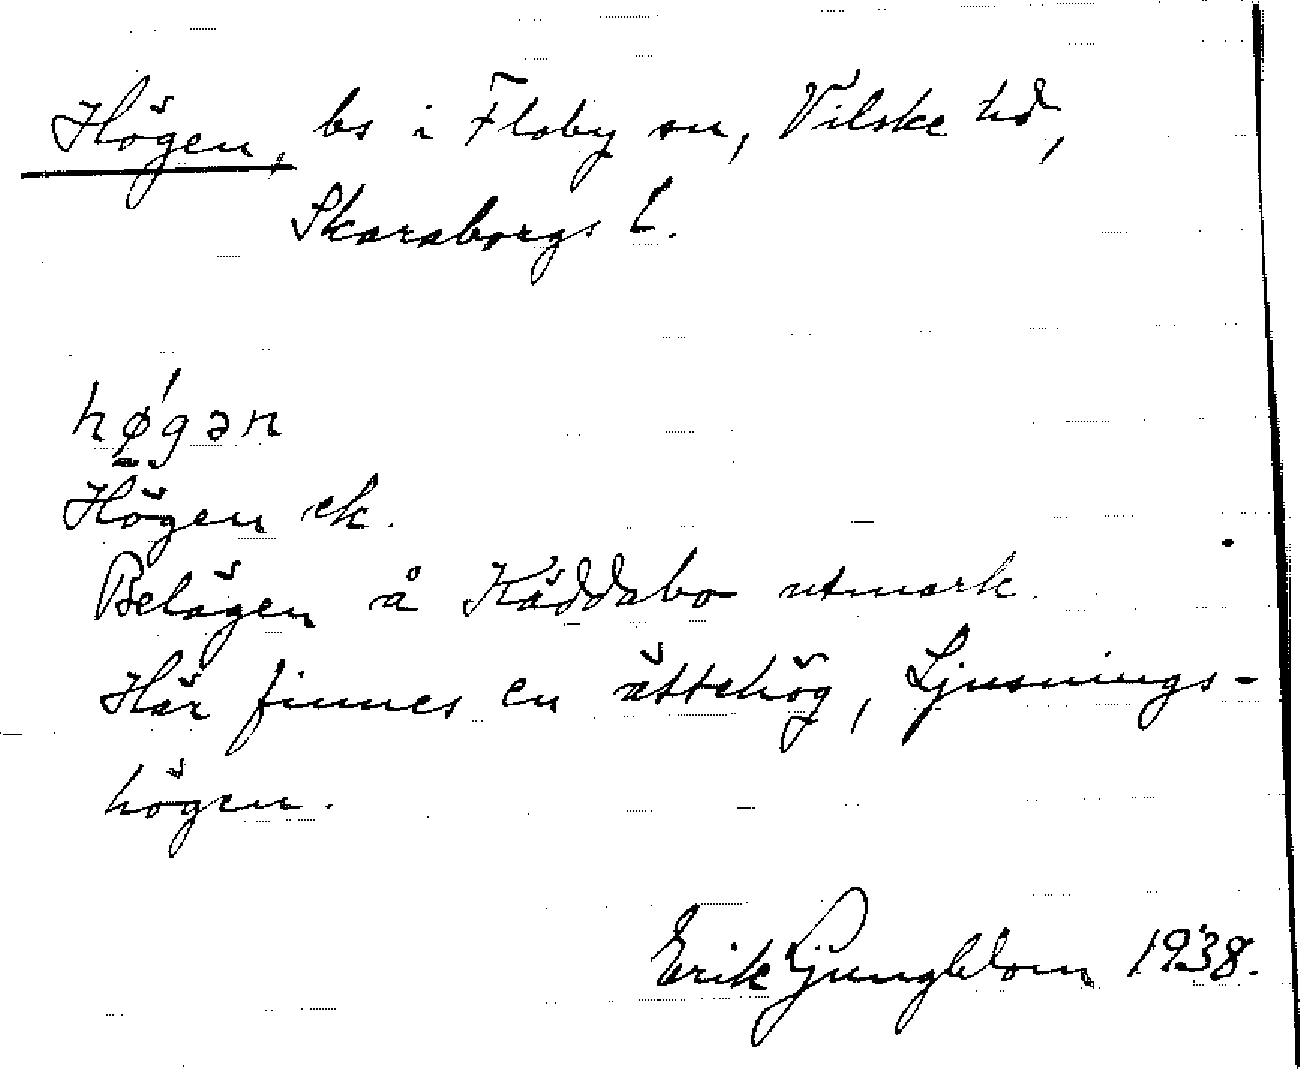 Högen, bs i Floby sn, Vilske hd,
Skaraborgs l.
hø̱´gən
Högen ek.
Belägen å Käddabo utmark.
Här finnes en ättehög, Ljusnings-
högen.
Erik Ljungblom 1938.